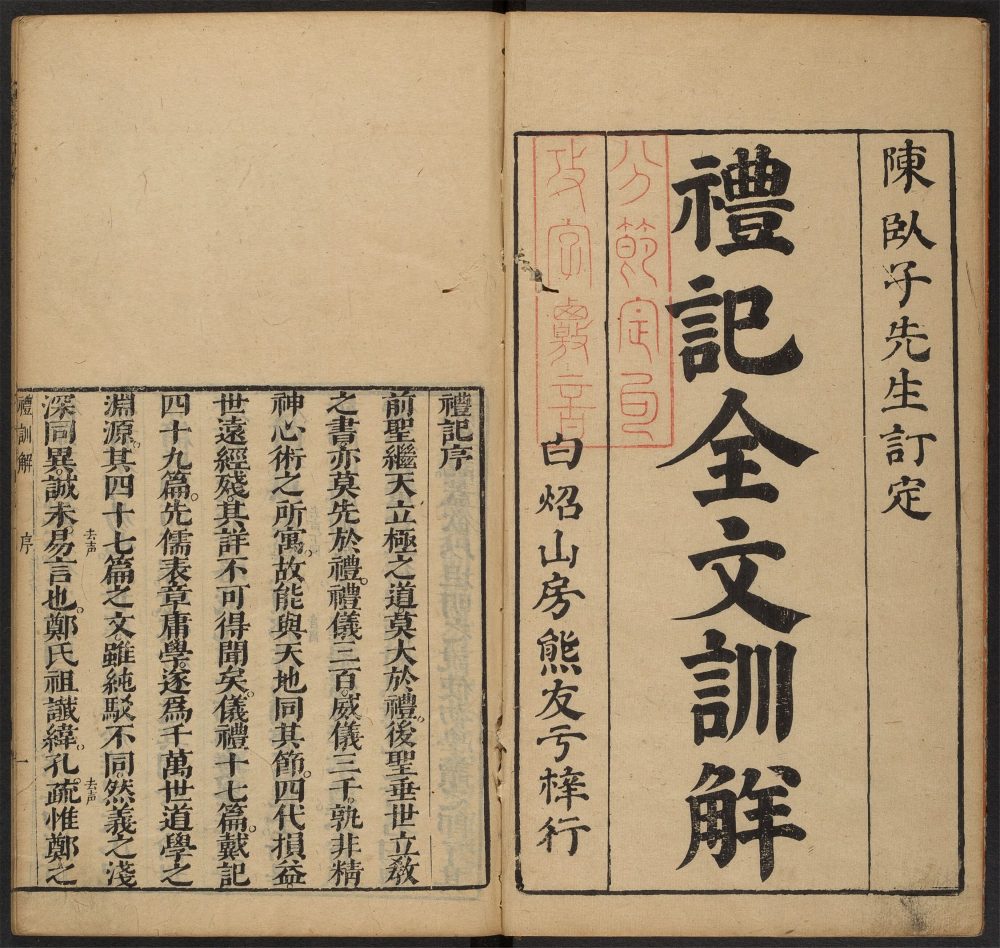 陳臥子先生訂定
禮記全文訓解
分節定句
考字覈音
白炤山房熊友于梓行
禮記序
前聖繼天立極之道莫大於禮。後聖垂世立教
之書亦莫先於禮。禮儀三百。威儀三千。孰非精
神心術之所寓。故能與天地同其節。四代損益。
世遠經殘。其詳不可得聞矣。儀禮十七篇。戴記
四十九篇。先儒表章庸學。遂爲千萬世道學之
淵源。其四十七篇之文。雖純駁不同。然義之淺
深同異。誠未。易去声言也。鄭氏祖讖緯。孔。疏去声惟鄭之
禮訓解 序 一